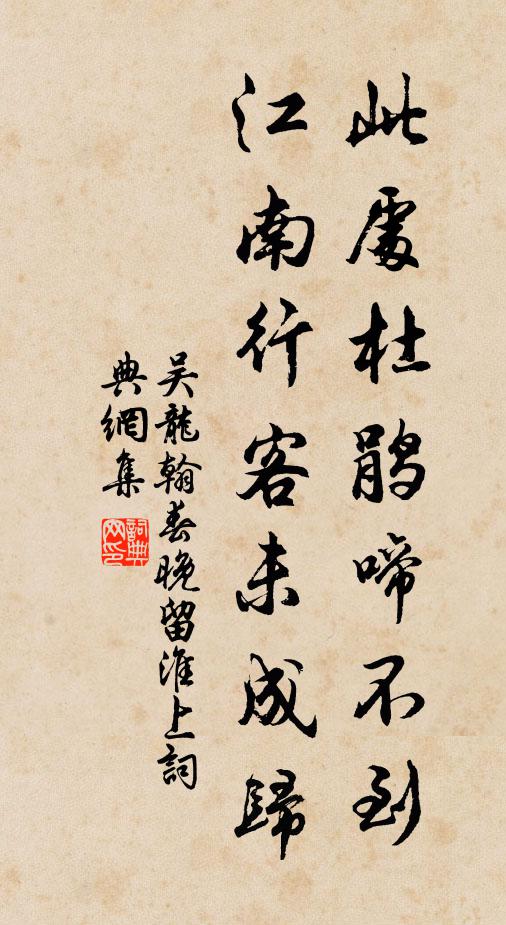 此處杜鵑啼不到
江南行客未成歸
吴龍翰春晚留淮上詞
典網集
詞典網印